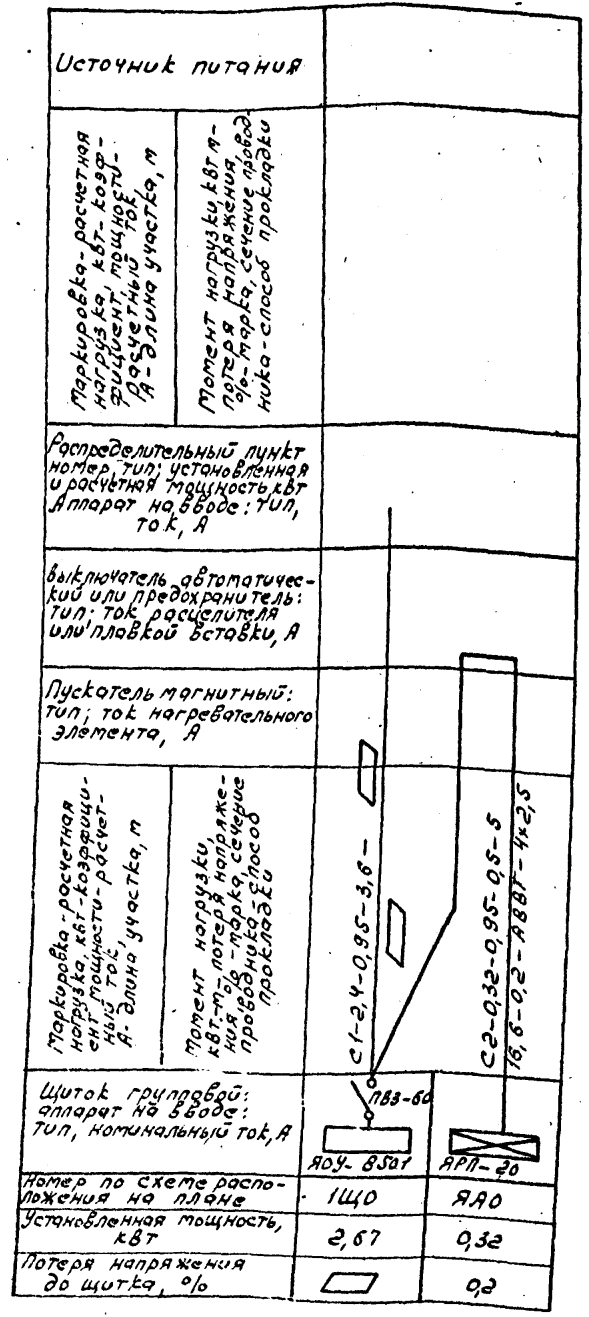 Источник питания
Маркировка-расчетная
нагрузка, квт-коэф-
фициент, мощности-
расчетный ток,
А-длина участка, м
Момент нагрузки, квт м-
потеря напряжения,
%-марка, сечение провод-
ника-способ прокладки
Распределительный пункт
номер, тип; установленная
и расчетная мощность, квт
Аппарат на вводе: тип,
ток, А
Выключатель автоматичес-
кий или предохранитель:
тип; ток расцепителя
или плавкой вставки, А
Пускатель магнитный:
тип; ток нагревательного
элемента, А
Маркировка-расчетная
нагрузка, квт-коэффици-
ент мощности-расчет-
ный ток,
А-длина участка, м
Момент нагрузки,
квт-м-потеря напряже-
ния %-марка, сечение
проводника-способ
прокладки
С1-2,4-0,95-3,6-
С2-0,32-0,95-0,5-5
16,6-0,2-АВВГ-4×2,5
Щиток групповой:
аппарат на вводе:
тип, номинальный ток, А
ПВ3-60
ЯОУ-8501
ЯРП-20
Номер по схеме распо-
ложения на плане
1ЩО
ЯАО
Установленная мощность,
квт
2,67
0,32
Потеря напряжения
до щитка, %
0,2